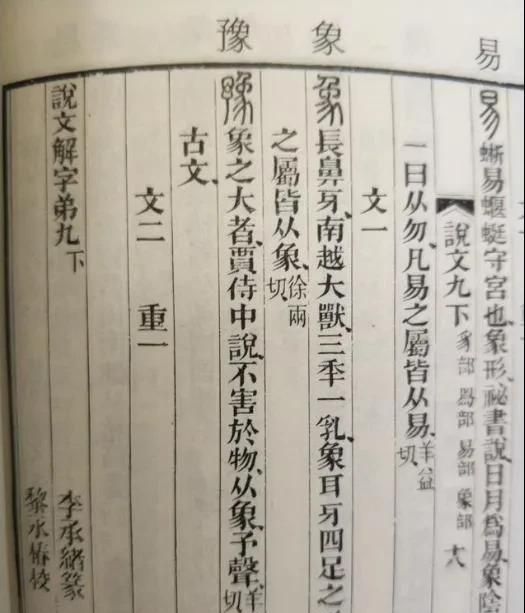 易 象 豫
易 蜥易蝘蜓守宮也象形祕書說日月為易象陰
說文九下 易部 象部 十八
一曰从勿凡易之屬皆从易羊益切
文一
象 長鼻牙南越大獸三秊一乳象耳牙四足之
之屬皆从象徐兩切
豫 象之大者賈侍中說不害於物从象予聲羊切
古文
文二 重一
說文解字弟九下
李承緒篆
黎永椿校